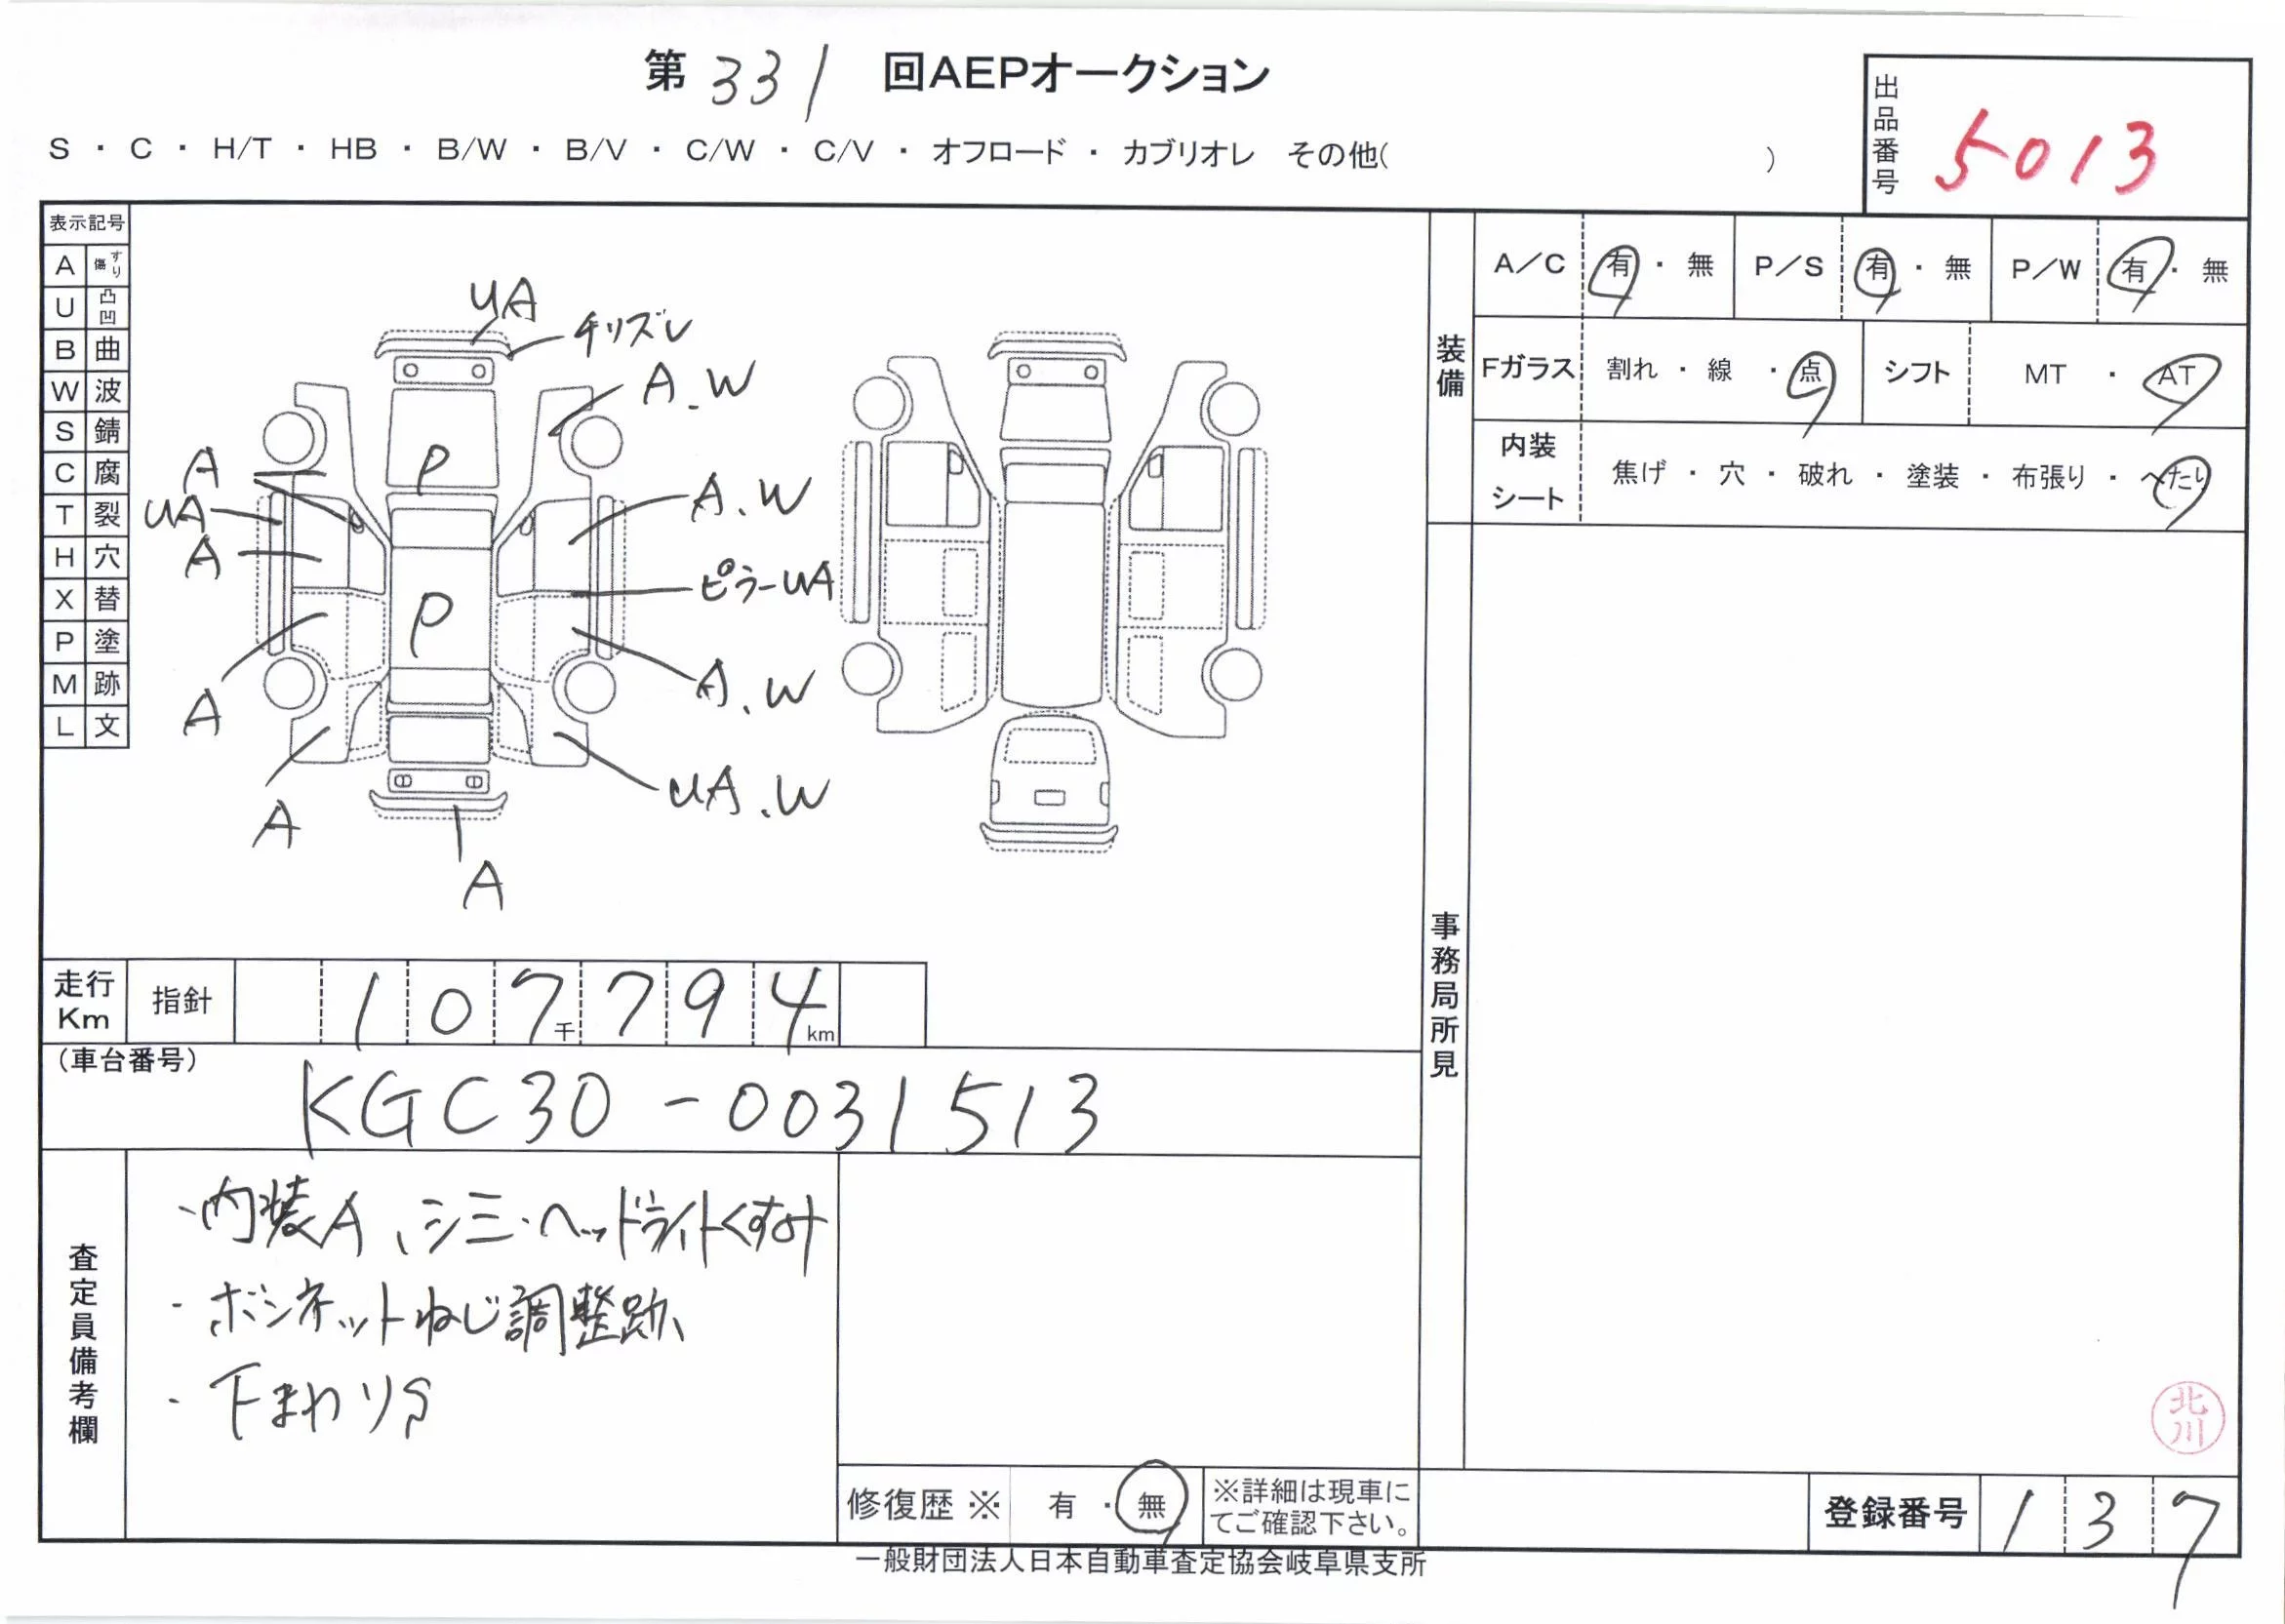 第 331 回AEPオークション
出品番号 5013
S ・ C ・ H/T ・ HB ・ B/W ・ B/V ・ C/W ・ C/V ・ オフロード ・ カブリオレ その他( )
表示記号
A すり傷
U 凸凹
B 曲
W 波
S 錆
C 腐
T 裂
H 穴
X 替
P 塗
M 跡
L 文
UA
チリズレ
A.W
P
A
UA
A
A.W
ピラーUA
P
A
A.W
A
UA.W
A
装備
A/C 有 ・ 無 P/S 有 ・ 無 P/W 有 ・ 無
Fガラス 割れ ・ 線 ・ 点 シフト MT ・ AT
内装シート 焦げ ・ 穴 ・ 破れ ・ 塗装 ・ 布張り ・ へたり
事務局所見
走行Km 指針 107千794km
(車台番号)
KGC30-0031513
査定員備考欄
・内装A、シミ・ヘッドライトくすみ
・ボンネットねじ調整跡
・下まわりS
北川
修復歴 ※ 有 ・ 無 ※詳細は現車にてご確認下さい。
登録番号 137
一般財団法人日本自動車査定協会岐阜県支所